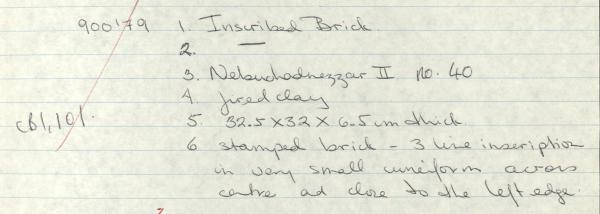 900'79 1. Inscribed Brick
2. —
3. Nebuchadnezzar II no. 40
4. fired clay
5. 32.5 x 32 x 6.5 cm thick.
6 stamped brick - 3 line inscription
in very small cuneiform across
centre ad close to the left edge.